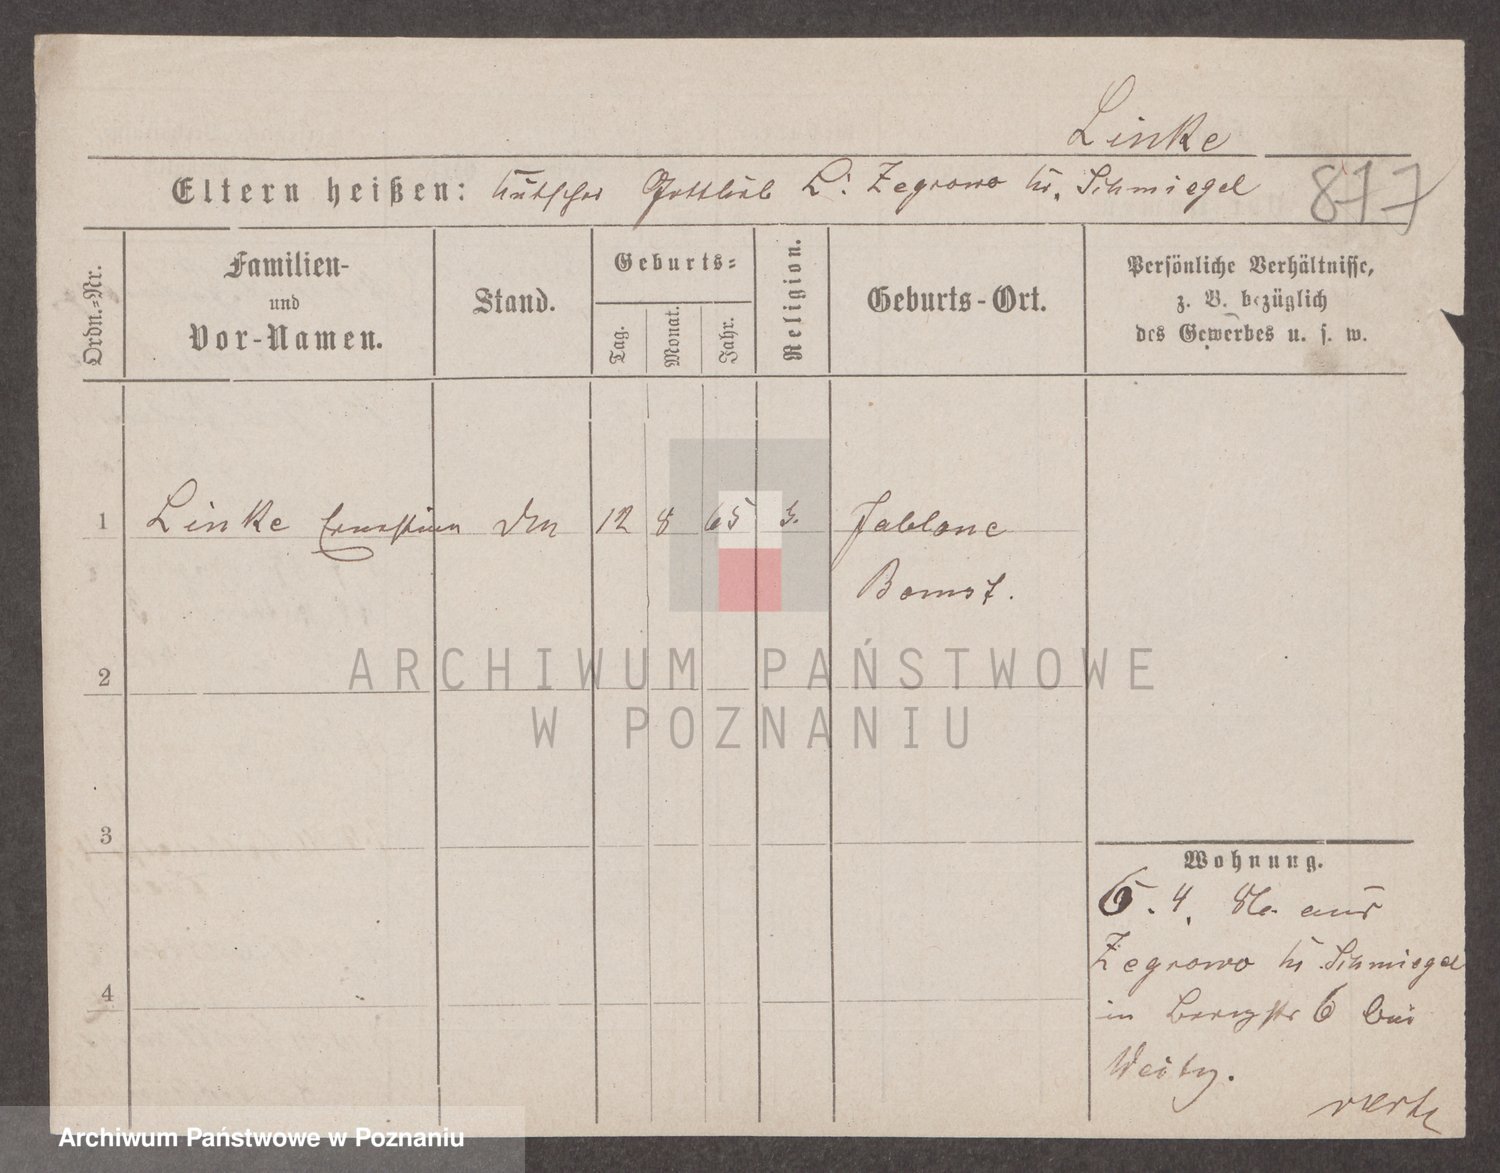 Linke
Eltern heißen: Kutscher Gottlieb L. Zegrowo Kr. Schmiegel
877
Ordn.-Nr.
Familien-
und
Vor-Namen.
Stand.
Geburts-
Tag.
Monat.
Jahr.
Religion.
Geburts-Ort.
Persönliche Verhältnisse,
z. B. bezüglich
des Gewerbes u. s. w.
1 Linke Ernestine 12 8 65 Jablone
Bomst.
2
ARCHIWUM PAŃSTWOWE
W POZNANIU
3
Wohnung.
6. 4. 86. aus
Zegrowo Kr. Schmiegel
4
in Bergstr 6 bei
Weitz.
Archiwum Państwowe w Poznaniu